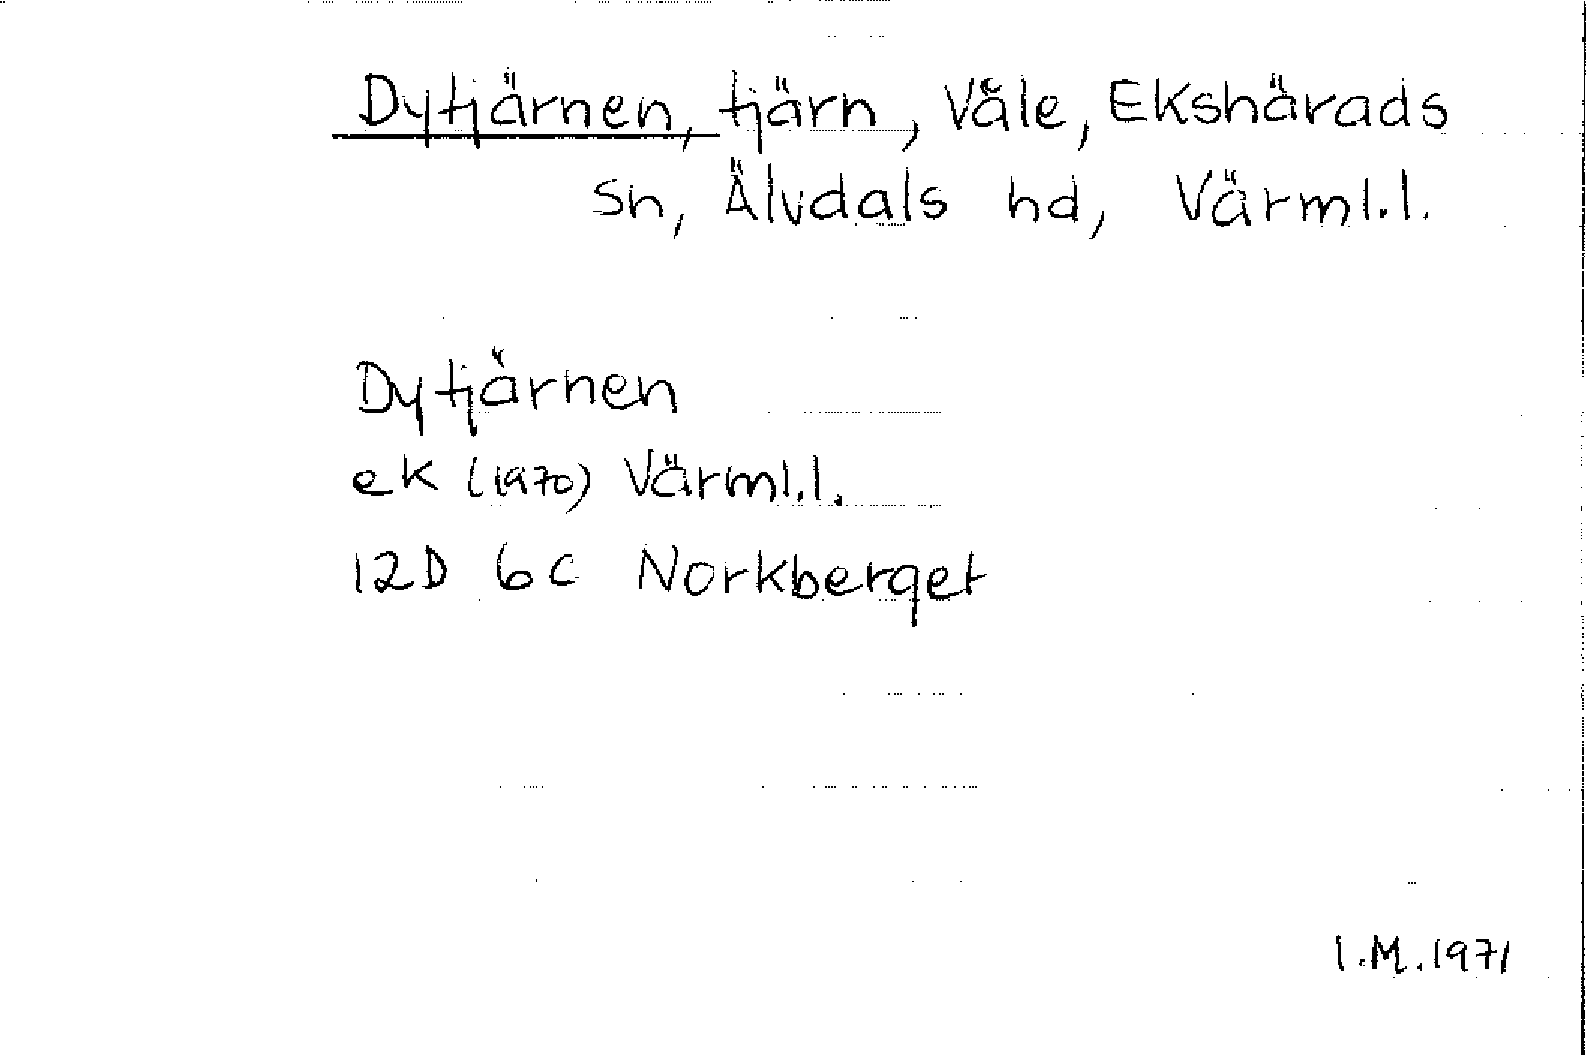 Dytjärnen, tjärn, Våle, Ekshärads
sn, Älvdals hd, Värml.l.
Dytjärnen
ek (1970) Värml.l.
12D 6c Norkberget
I.M.1971